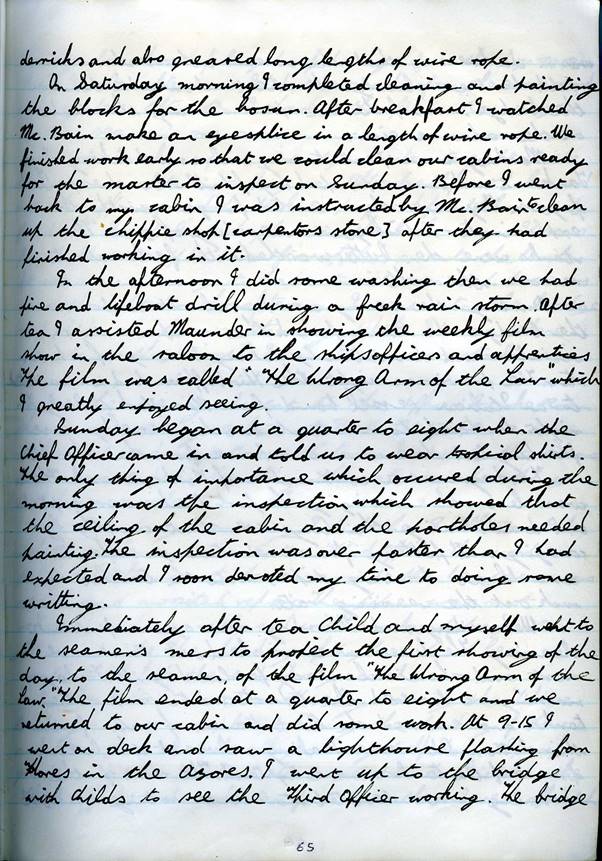 derricks and also greased long lengths of wire rope.
On Saturday morning I completed cleaning and painting
the blocks for the bosun. After breakfast I watched
Mc. Bain make an eyesplice in a length of wire rope. We
finished work early so that we could clean our cabins ready
for the master to inspect on Sunday. Before I went
back to my cabin I was instructed by Mc. Bain to clean
up the 'chippie shop [carpentors store] after they had
finished working in it.
In the afternoon I did some washing then we had
fire and lifeboat drill during a freek rain storm. After
tea I assisted Maunder in showing the weekly film
show in the saloon to the ships officers and apprentices
The film was called "The Wrong Arm of the Law" which
I greatly enjoyed seeing.
Sunday began at a quarter to eight when the
Chief Officer came in and told us to wear tropical shirts.
The only thing of importance which occured during the
morning was the inspection which showed that
the ceiling of the cabin and the portholes needed
painting. The inspection was over faster than I had
expected and I soon devoted my time to doing some
writting.
Immediately after tea Child and myself went to
the seamen's mess to project the first showing of the
day, to the seamen, of the film "The Wrong Arm of the
Law." The film ended at a quarter to eight and we
returned to our cabin and did some work. At 9-15 I
went on deck and saw a lighthouse flashing from
Flores in the Azores. I went up to the bridge
with Childs to see the Third Officer working. The bridge
65